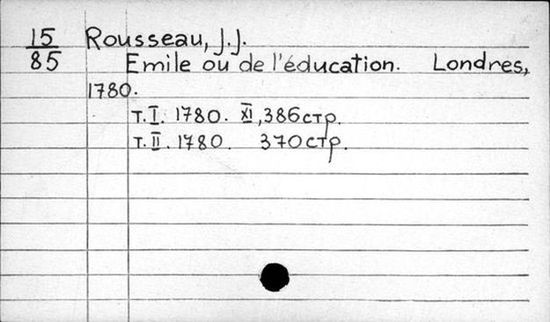 15 Rousseau, J.J.
85 Emile ou de l'éducation. Londres,
1780.
т. I. 1780. XI, 386 стр.
т. II. 1780. 370 стр.